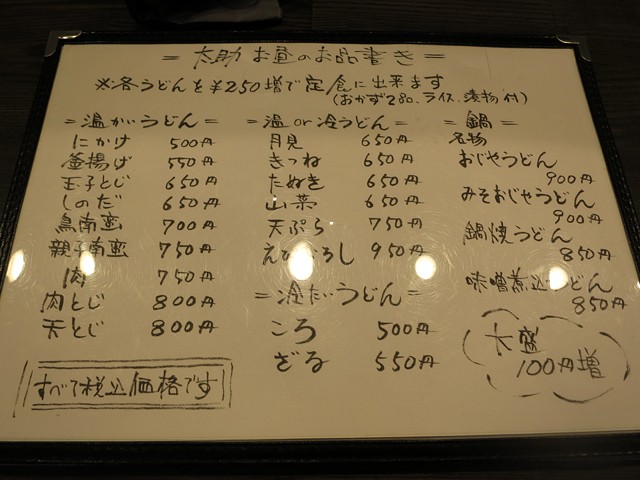 = 太助 お昼のお品書き =
※各うどんを¥250増で定食に出来ます
(おかず2品、ライス、漬物付)
= 温かいうどん =
にかけ 500円
釜揚げ 550円
玉子とじ 650円
しのだ 650円
鳥南蛮 700円
親子南蛮 750円
肉 750円
肉とじ 800円
天とじ 800円
すべて税込価格です
= 温or冷うどん =
月見 650円
きつね 650円
たぬき 650円
山菜 650円
天ぷら 750円
えびおろし 950円
= 冷たいうどん =
ころ 500円
ざる 550円
= 鍋 =
名物
おじやうどん
900円
みそおじやうどん
900円
鍋焼うどん
850円
味噌煮込うどん
850円
大盛
100円増